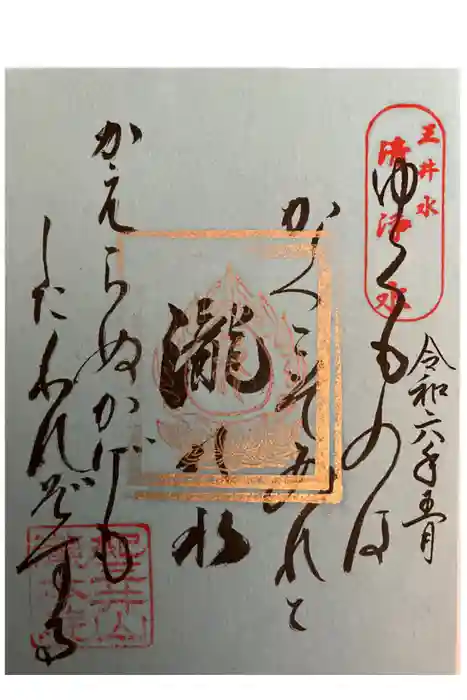 三井水
清浄水
令和六年五月
ゆくものは
かくこそあれと
瀧
かえらぬかげも
したわれぞする